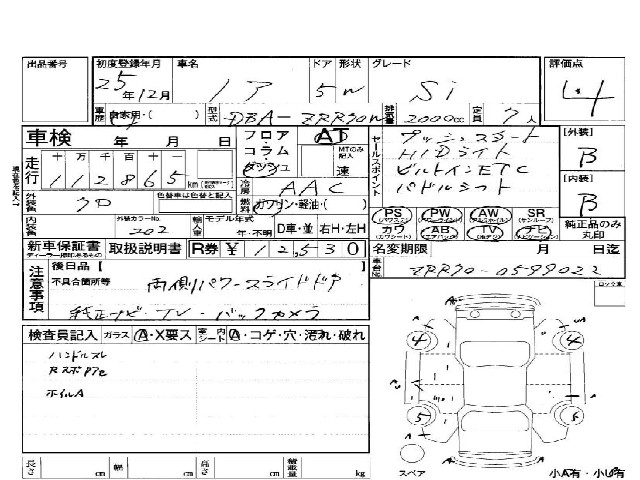 出品番号 初度登録年月 車名 ドア 形状 グレード 評価点
25年12月 ノア 5 W Si 4
車歴 自家用・( ) 型式 DBA-ZRR70W 排気量 2000cc 定員 7人
車検 年 月 日 フロア・コラム AT MTのみ記入 速 セールスポイント プッシュスタート [外装]
走行 十 万 千 百 十 一 HIDライト B
112865 km 冷房 AAC ビルトインETC [内装]
外装色 クロ 色替車は色替と記入 燃料 ガソリン・軽油・( ) パドルシフト B
内装色 外装カラーNo. 202 輸入車 モデル年式 年・不明 D車・並 右H・左H PS PW AW SR
カワ AB TV ナビ 純正品のみ丸印
新車保証書 取扱説明書 R券 ¥12,530 名変期限 月 日迄
注意事項 後日品 [ 車台No. ZRR70-0599022
不具合箇所等 両側パワースライドドア
純正ナビ・TV・バックカメラ
検査員記入 ガラス A・X要ス 室内シート A・コゲ・穴・汚れ・破れ
ハンドルスレ
ホイルA
長さ cm 幅 cm 高さ cm 積載量 kg
スペア 小A有・小U有